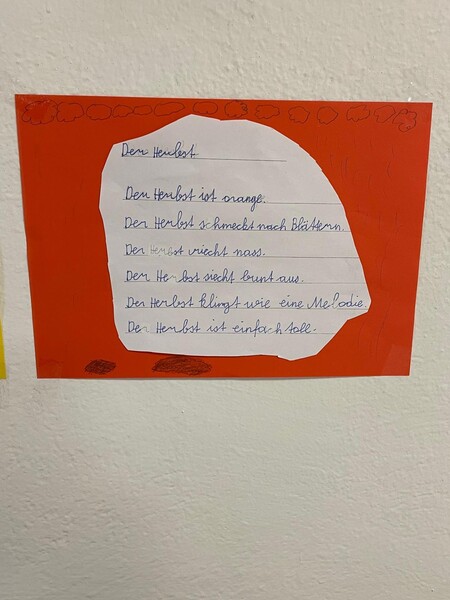 Der Herbst
Der Herbst ist orange.
Der Herbst schmeckt nach Blättern.
Der Herbst riecht nass.
Der Herbst siecht bunt aus.
Der Herbst klingt wie eine Melodie.
Der Herbst ist einfach toll.